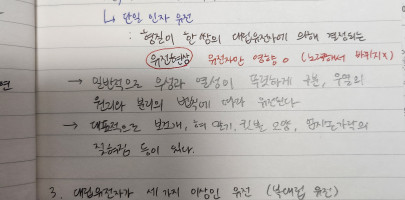 ↳ 단일 인자 유전
: 형질이 한 쌍의 대립유전자에 의해 결정되는
유전현상 유전자만 영향 o (노력해서 바뀌지x)
→ 일반적으로 우성과 열성이 뚜렷하게 구분, 우열의
원리와 분리의 법칙에 따라 유전된다
→ 대표적으로 보조개, 혀 말기, 귓불 모양, 엄지손가락의
젖혀짐 등이 있다.
3. 대립유전자가 세 가지 이상인 유전 (복대립 유전)